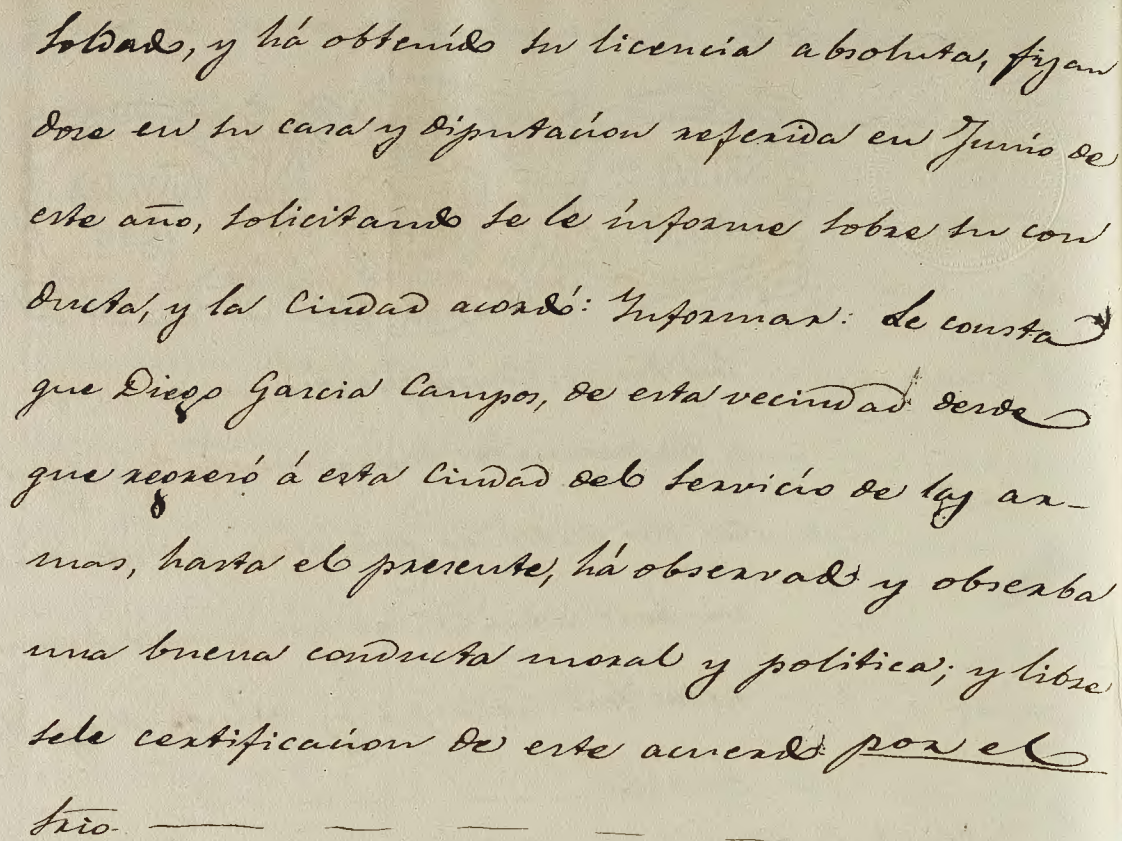 Soldado, y há obtenido su licencia absoluta, fijan
dose en su casa y diputacion referida en Junio de
este año, solicitando se le informe sobre su con
ducta, y la Ciudad acordó: Informar: Le consta
que Diego Garcia Campos, de esta vecindad desde
que regresó á esta Ciudad del servicio de las ar-
mas, hasta el presente, há observado y obserba
una buena conducta moral y politica; y libre
sele certificacion de este acuerdo por el
Srio.